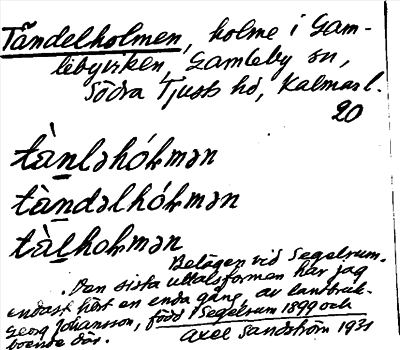 Tändelholmen, holme i Gam-
lebyviken, Gamleby sn,
Södra Tjusts hd, Kalmar l.
20
tànləhólmən
tàndəlhólmən
tàlholmən
Belägen vid Segelrum.
Den sista uttalsformen har jag
endast hört en enda gång, av lantbruk.
Georg Johansson, född i Segelrum 1899 och
boende där.
Axel Sandström 1931